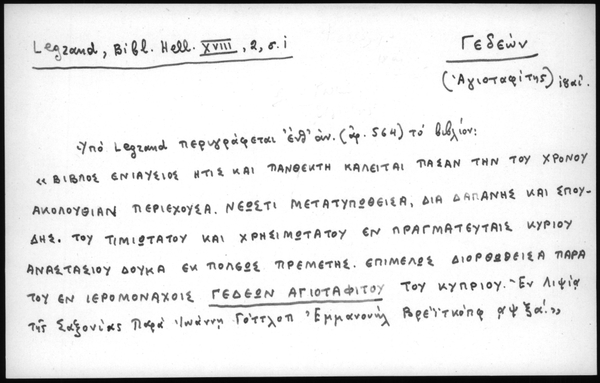 Legrand, Bibl. Hell. XVIII, 2, σ. 1
Γεδεών
(Ἁγιοταφίτης)
Ὑπὸ Legrand περιγράφεται ἐνθ' ἀν. (ἀρ. 564) τὸ βιβλίον:
« ΒΙΒΛΟΣ ΕΝΙΑΥΣΙΟΣ ΗΤΙΣ ΚΑΙ ΠΑΝΘΕΚΤΗ ΚΑΛΕΙΤΑΙ ΠΑΣΑΝ ΤΗΝ ΤΟΥ ΧΡΟΝΟΥ
ΑΚΟΛΟΥΘΙΑΝ ΠΕΡΙΕΧΟΥΣΑ. ΝΕΩΣΤΙ ΜΕΤΑΤΥΠΩΘΕΙΣΑ, ΔΙΑ ΔΑΠΑΝΗΣ ΚΑΙ ΣΠΟΥ-
ΔΗΣ. ΤΟΥ ΤΙΜΙΩΤΑΤΟΥ ΚΑΙ ΧΡΗΣΙΜΩΤΑΤΟΥ ΕΝ ΠΡΑΓΜΑΤΕΥΤΑΙΣ ΚΥΡΙΟΥ
ΑΝΑΣΤΑΣΙΟΥ ΔΟΥΚΑ ΕΚ ΠΟΛΕΩΣ ΠΡΕΜΕΤΗΣ. ΕΠΙΜΕΛΩΣ ΔΙΟΡΘΩΘΕΙΣΑ ΠΑΡΑ
ΤΟΥ ΕΝ ΙΕΡΟΜΟΝΑΧΟΙΣ ΓΕΔΕΩΝ ΑΓΙΟΤΑΦΙΤΟΥ ΤΟΥ ΚΥΠΡΙΟΥ.- Ἐν Λιψίᾳ
τῆς Σαξονίας Παρὰ Ἰωάννῃ Γόττλοπ Ἐμμανουὴλ Βρεϊτκόπφ αψξα΄. »